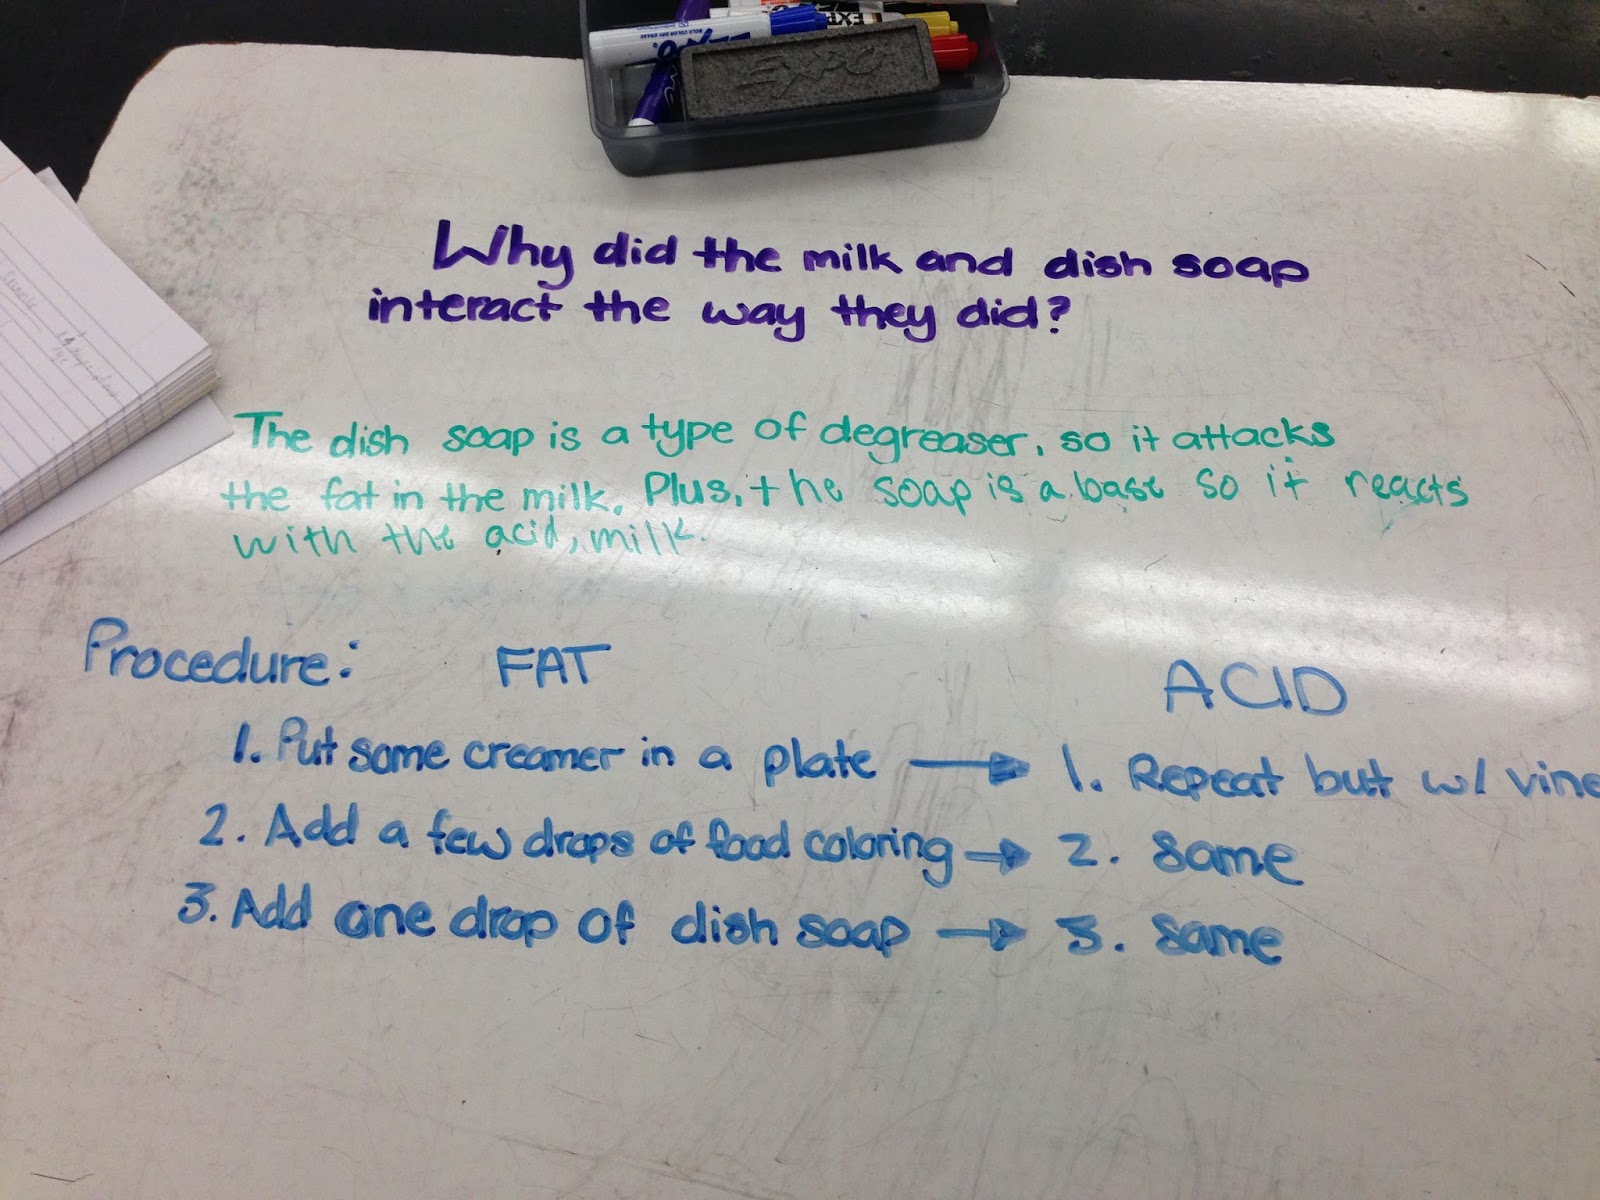 EXPO
BOLD COLOR DRY ERASE
EXPO
Why did the milk and dish soap
interact the way they did?
The dish soap is a type of degreaser, so it attacks
the fat in the milk. Plus, the soap is a base so it reacts
with the acid, milk.
Procedure: FAT ACID
1. Put some creamer in a plate → 1. Repeat but w/ vine
2. Add a few drops of food coloring → 2. Same
3. Add one drop of dish soap → 3. Same